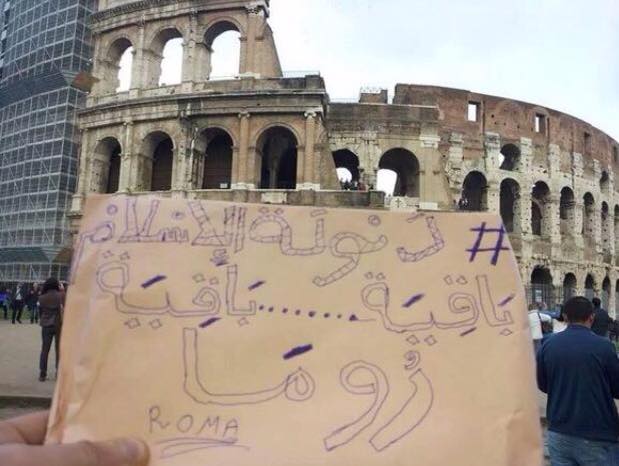 #دَوْلَة الإسْلام
بَاقِيَة.......بَاقِيَة
رُومَا
ROMA